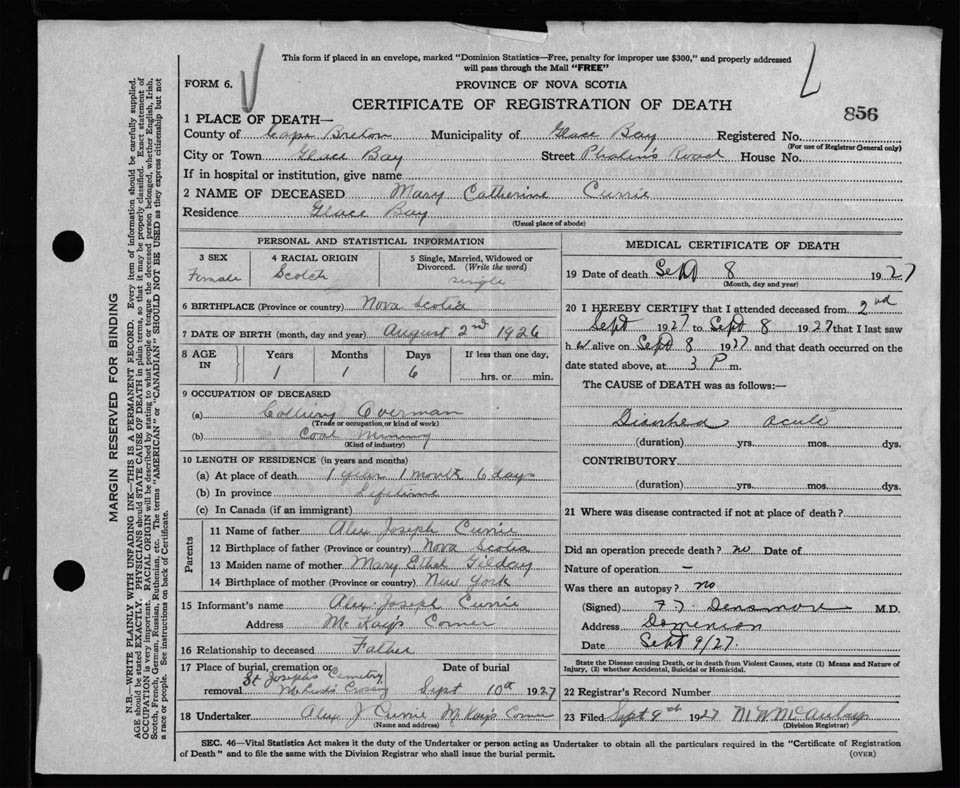 This form if placed in an envelope, marked "Dominion Statistics—Free, penalty for improper use $300," and properly addressed
will pass through the Mail "FREE"
FORM 6.
PROVINCE OF NOVA SCOTIA
CERTIFICATE OF REGISTRATION OF DEATH
856
1 PLACE OF DEATH—
County of Cape Breton Municipality of Glace Bay Registered No.
(For use of Registrar General only)
City or Town Glace Bay Street Phalen's Road House No.
If in hospital or institution, give name
2 NAME OF DECEASED Mary Catherine Currie
Residence Glace Bay
(Usual place of abode)
PERSONAL AND STATISTICAL INFORMATION
3 SEX 4 RACIAL ORIGIN 5 Single, Married, Widowed or
Divorced. (Write the word)
Female Scotch single
6 BIRTHPLACE (Province or country) Nova Scotia
7 DATE OF BIRTH (month, day and year) August 2nd 1926
8 AGE IN Years Months Days If less than one day,
1 1 6 hrs. or min.
9 OCCUPATION OF DECEASED
(a) Colliery Overman
(Trade or occupation, or kind of work)
(b) Coal Mining
(Kind of industry)
10 LENGTH OF RESIDENCE (in years and months)
(a) At place of death 1 year 1 month 6 days
(b) In province Lifetime
(c) In Canada (if an immigrant)
Parents
11 Name of father Alex Joseph Currie
12 Birthplace of father (Province or country) Nova Scotia
13 Maiden name of mother Mary Ethel Gilday
14 Birthplace of mother (Province or country) New York
15 Informant's name Alex Joseph Currie
Address McKay's Corner
16 Relationship to deceased Father
17 Place of burial, cremation or removal Date of burial
St Josephs Cemetry
Crossing Sept 10th 1927
18 Undertaker Alex J Currie McKay's Corner
(Name and address)
MEDICAL CERTIFICATE OF DEATH
19 Date of death Sept 8 1927
(Month, day and year)
20 I HEREBY CERTIFY that I attended deceased from 2nd
Sept 1927 to Sept 8 1927 that I last saw
her alive on Sept 8 1927 and that death occurred on the
date stated above, at 3 P m.
The CAUSE of DEATH was as follows:—
Diarrhea acute
(duration) yrs. mos. dys.
CONTRIBUTORY
(duration) yrs. mos. dys.
21 Where was disease contracted if not at place of death?
Did an operation precede death? no Date of
Nature of operation –
Was there an autopsy? no
(Signed) Densmore M.D.
Address Dominion
Date Sept 9/27.
State the Disease causing Death, or in death from Violent Causes, state (1) Means and Nature of
Injury, (2) whether Accidental, Suicidal or Homicidal.
22 Registrar's Record Number
23 Filed Sept 9th 1927 M W McAulay
(Division Registrar)
SEC. 46—Vital Statistics Act makes it the duty of the Undertaker or person acting as Undertaker to obtain all the particulars required in the "Certificate of Registration
of Death" and to file the same with the Division Registrar who shall issue the burial permit.
(OVER)
MARGIN RESERVED FOR BINDING
N.B.—WRITE PLAINLY WITH UNFADING INK—THIS IS A PERMANENT RECORD. Every item of information should be carefully supplied.
AGE should be stated EXACTLY. PHYSICIANS should STATE CAUSE OF DEATH in plain terms, so that it may be properly classified. Exact statement of
OCCUPATION is very important. RACIAL ORIGIN will be described by stating to what people or tongue the deceased person belonged, whether English, Irish,
Scotch, French, German, Russian, Ruthenian, etc. The terms "AMERICAN" or "CANADIAN" SHOULD NOT BE USED as they express citizenship but not
a race or people. See instructions on back of Certificate.